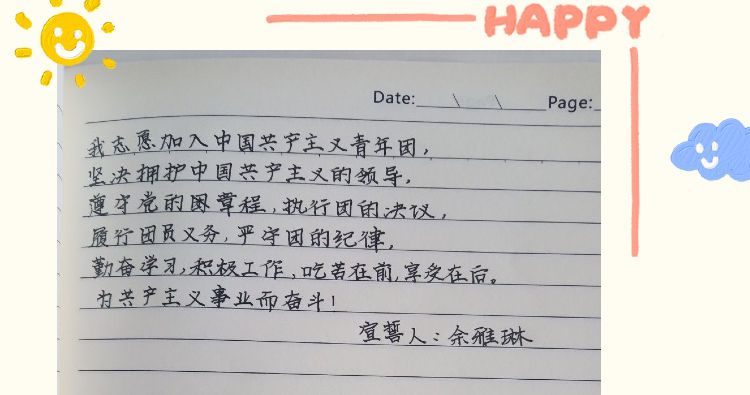 HAPPY
Date: \ \ Page:
我志愿加入中国共产主义青年团,
坚决拥护中国共产主义的领导,
遵守党的团章程,执行团的决议,
履行团员义务,严守团的纪律,
勤奋学习,积极工作,吃苦在前,享受在后。
为共产主义事业而奋斗!
宣誓人:余雅琳